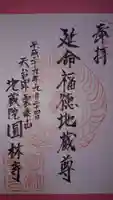 奉拝
延命福徳地蔵尊
平成二十九年九月二十四日
地蔵院圓林寺